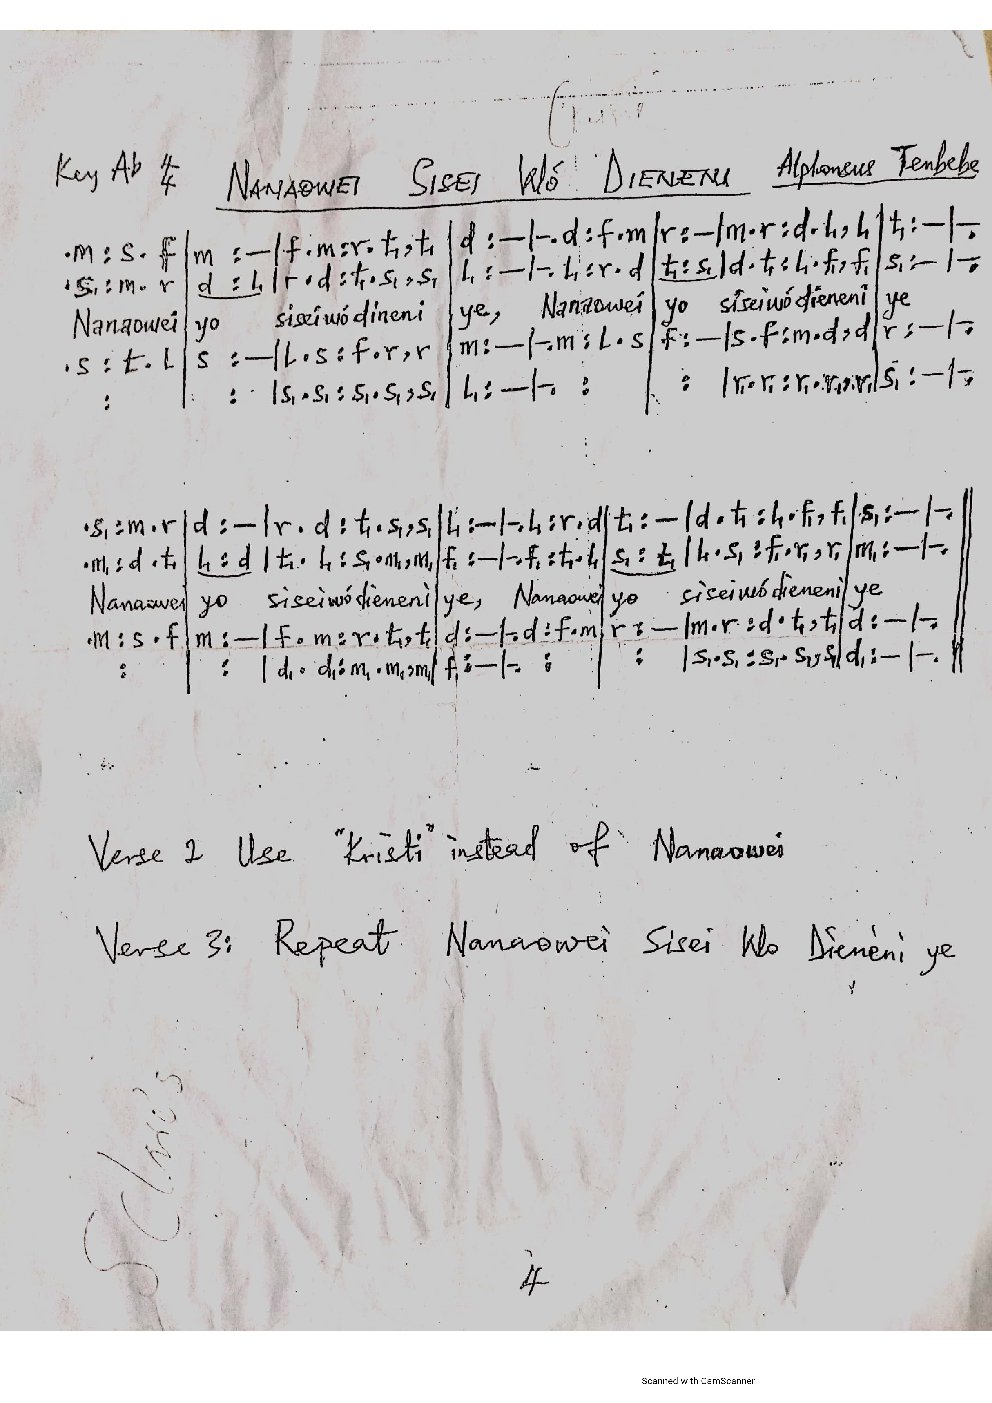 Key Ab 4/4 NANAOWEI SISEI Kló DIENENI Alphonsus Tenbebe
.m : s . f | m : — | f . m : r . t₁ , t₁ | d : — | — . d : f . m | r : — | m . r : d . l₁ , l₁ | t₁ : — | — .
. s₁ : m . r | d : l₁ | r . d : t₁ . s₁ , s₁ | l₁ : — | — . l₁ : r . d | t₁ : s₁ | d . t₁ : l₁ . f₁ , f₁ | s₁ : — | — .
Nanaowei yo siseiwó dineni ye, Nanaowei yo siseiwó dieneni ye
. s : t . l | s : — | l . s : f . r , r | m : — | — . m : l . s | f : — | s . f : m . d , d | r : — | — .
: | : | s₁ . s₁ : s₁ . s₁ , s₁ | l₁ : — | — . : | : | r₁ . r₁ : r₁ . r₁ , r₁ | s₁ : — | — .
. s₁ : m . r | d : — | r . d : t₁ . s₁ , s₁ | l₁ : — | — . l₁ : r . d | t₁ : — | d . t₁ : l₁ . f₁ , f₁ | s₁ : — | — . ||
. m₁ : d . t₁ | l₁ : d | t₁ . l₁ : s₁ . m₁ , m₁ | f₁ : — | — . f₁ : t₁ . l₁ | s₁ : t₁ | l₁ . s₁ : f₁ . r₁ , r₁ | m₁ : — | — . ||
Nanaowei yo siseiwó dieneni ye, Nanaowei yo siseiwó dieneni ye
. m : s . f | m : — | f . m : r . t₁ , t₁ | d : — | — . d : f . m | r : — | m . r : d . t₁ , t₁ | d : — | — . ||
: | : | d₁ . d₁ : m₁ . m₁ , m₁ | f₁ : — | — . : | : | s₁ . s₁ : s₁ . s₁ , s₁ | d₁ : — | — . ||
Verse 2 Use "Kristi" instead of Nanaowei
Verse 3: Repeat Nanaowei Sisei klo Dieneni ye
4
Scanned with CamScanner